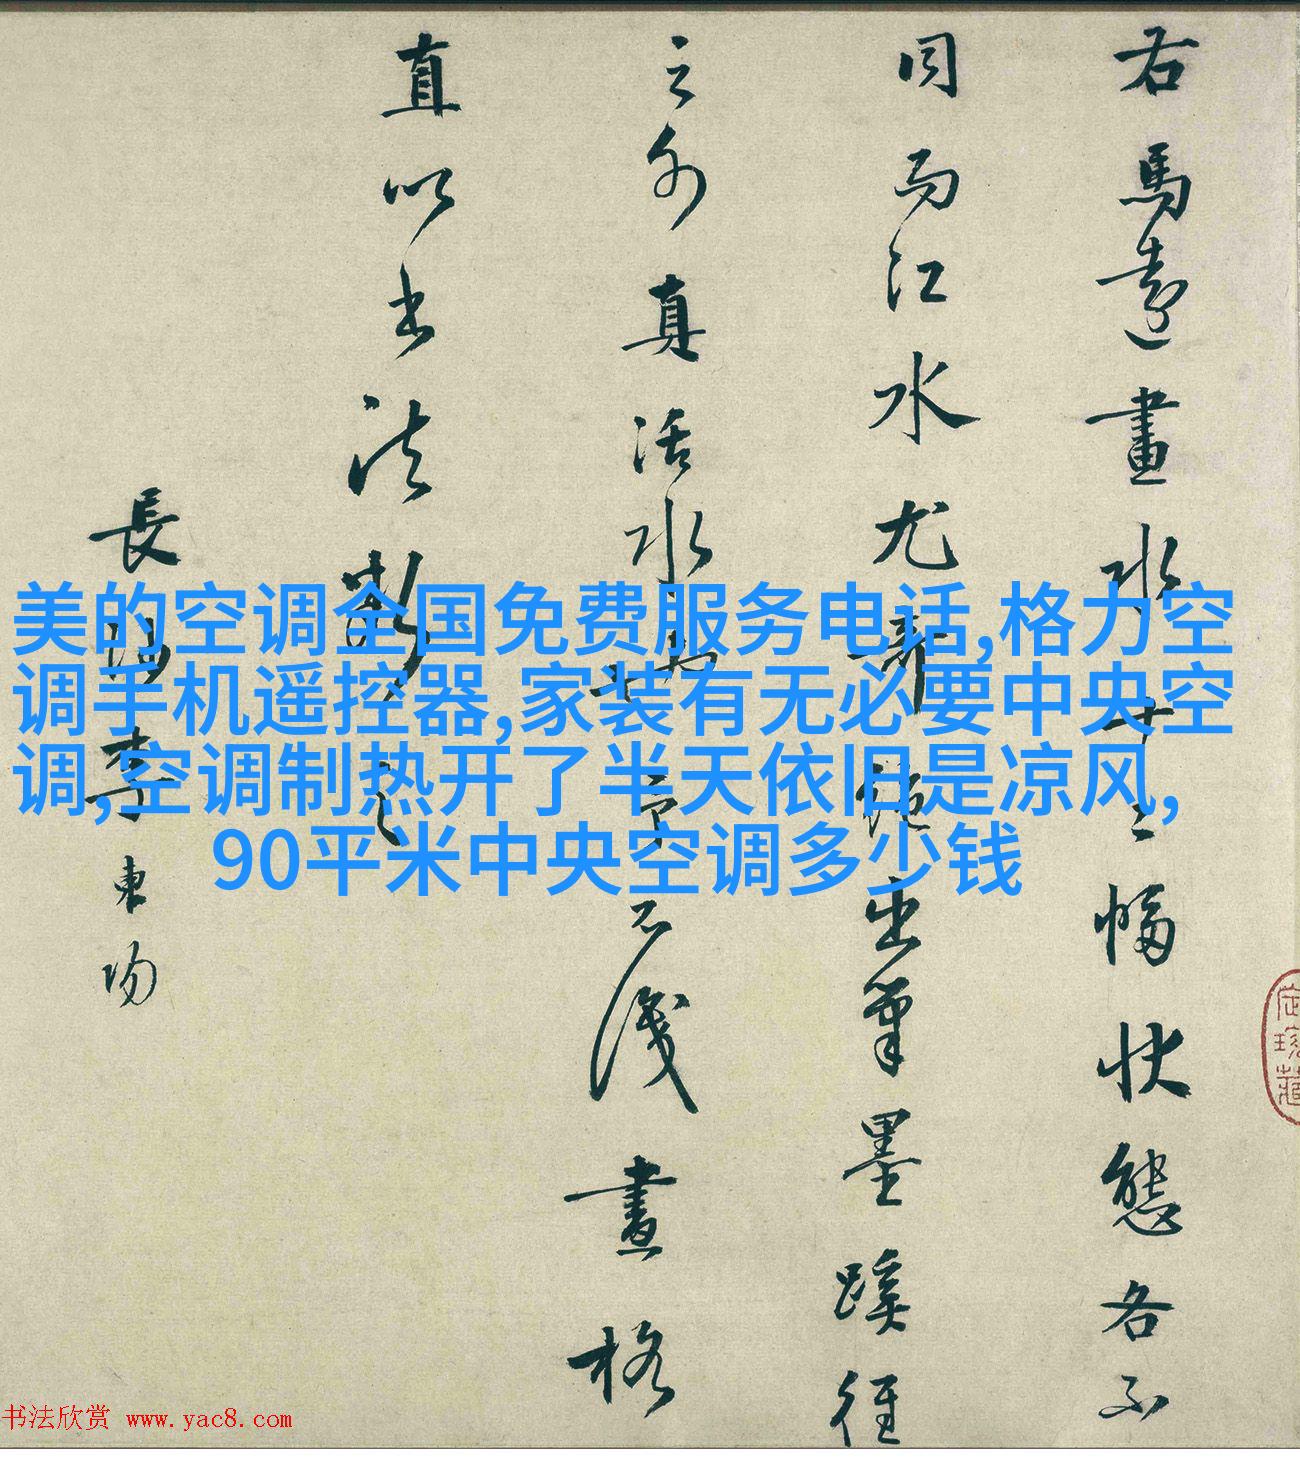 右馬遠畫水十二幅狀態各不
同而江水尤奇絕出筆墨蹊徑
之外真活水也予不識畫格
直以書法斷之
長沙李東陽
美的空调全国免费服务电话,格力空
调手机遥控器,家装有无必要中央空
调,空调制热开了半天依旧是凉风,
90平米中央空调多少钱
书法欣赏 www.yac8.com